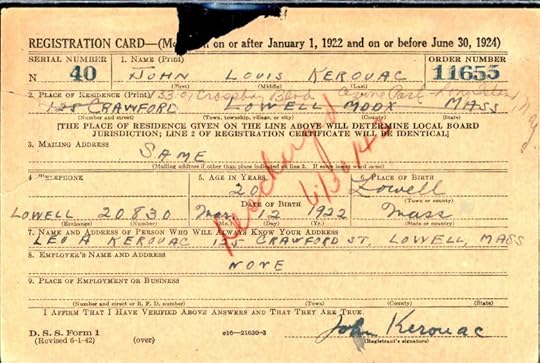 REGISTRATION CARD—(Men born on or after January 1, 1922 and on or before June 30, 1924)
SERIAL NUMBER 1. NAME (Print) ORDER NUMBER
N 40 JOHN LOUIS KEROUAC 11655
(First) (Middle) (Last)
2. PLACE OF RESIDENCE (Print) 33-01 Crossbay Blvd Ozone Park
125 CRAWFORD LOWELL MDDX MASS
(Number and street) (Town, township, village, or city) (County) (State)
[THE PLACE OF RESIDENCE GIVEN ON THE LINE ABOVE WILL DETERMINE LOCAL BOARD
JURISDICTION; LINE 2 OF REGISTRATION CERTIFICATE WILL BE IDENTICAL]
3. MAILING ADDRESS
SAME
(Mailing address if other than place indicated on line 2. If same insert word same)
4. TELEPHONE 5. AGE IN YEARS 6. PLACE OF BIRTH
20 Lowell
DATE OF BIRTH (Town or county)
LOWELL 20830 Mar 12 1922 Mass
(Exchange) (Number) (Mo.) (Day) (Yr.) (State or country)
7. NAME AND ADDRESS OF PERSON WHO WILL ALWAYS KNOW YOUR ADDRESS
LEO A KEROUAC 125 CRAWFORD ST, LOWELL, MASS
8. EMPLOYER'S NAME AND ADDRESS
NONE
9. PLACE OF EMPLOYMENT OR BUSINESS
(Number and street or R. F. D. number) (Town) (County) (State)
I AFFIRM THAT I HAVE VERIFIED ABOVE ANSWERS AND THAT THEY ARE TRUE.
D. S. S. Form 1
(Revised 6-1-42) (over) e16—21630-3
John Kerouac
(Registrant's signature)